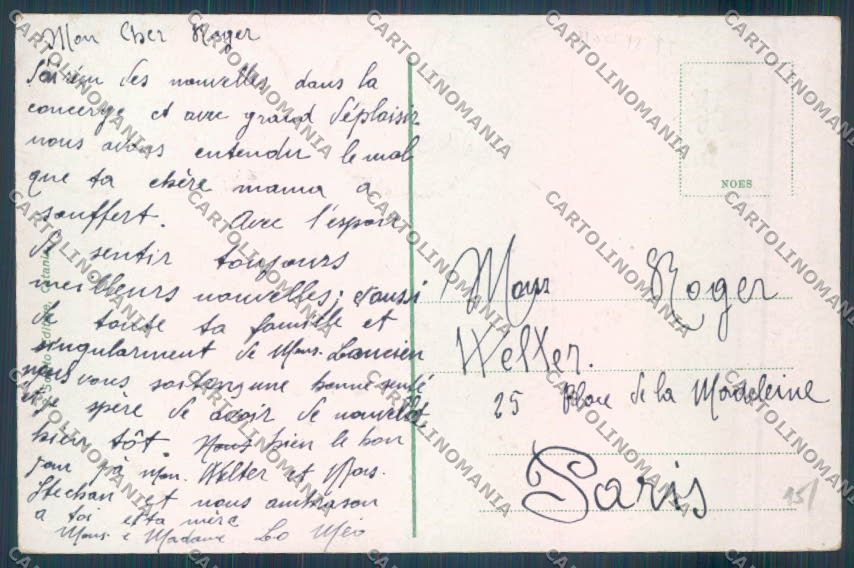 Mon Cher Roger
J'ai eu des nouvelles dans la
concerge et avec grand déplaisir
nous avons entendu le mal
que ta chère mama a
souffert. Avec l'espoir
de sentir toujours
meilleurs nouvelles; d'aussi
de toute ta famille et
singularment de Mons. Lancien
nous vous une bonne santé
et je spère de avoir de nouvelles
bien tôt. bien le bon
jour à Mon. Welter et Mons.
Stechan et nous ambrason
a toi e ta mère
Mons. e Madame Lo Meo
NOES
Mons Roger
Welter.
25 Place de la Madeleine
Paris
25/
Editore, Catania
CARTOLINOMANIA